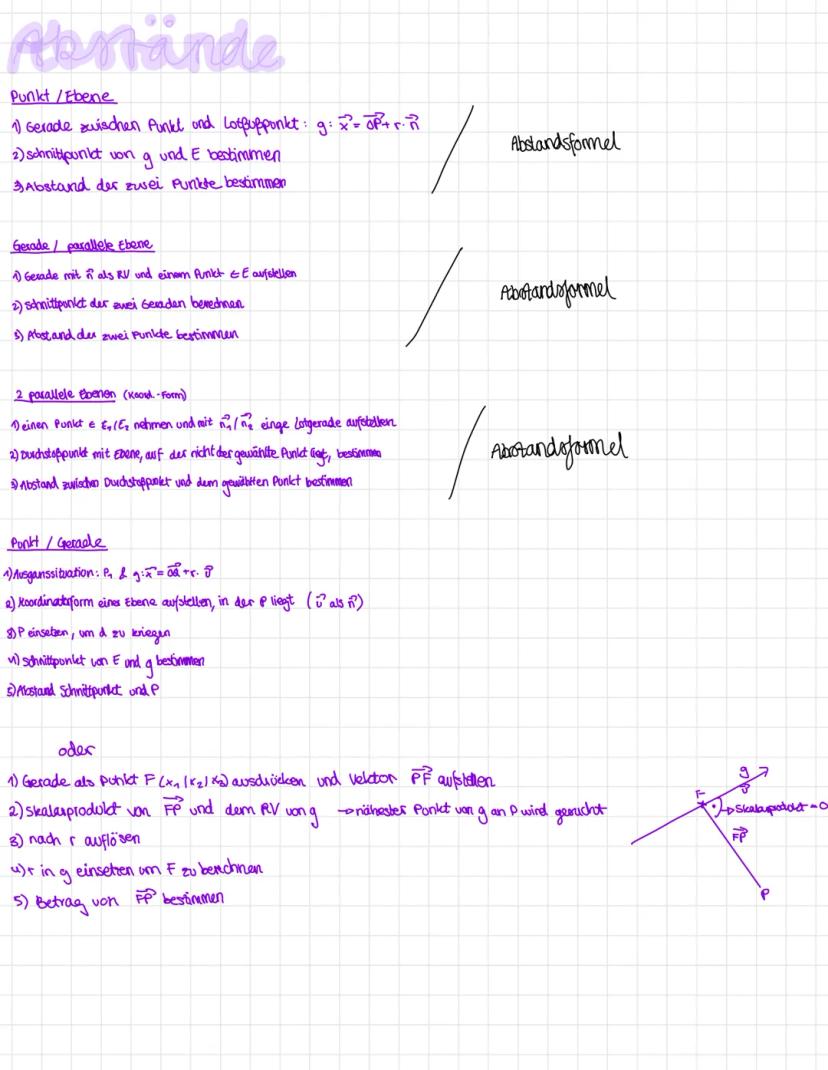 Abstände
Punkt / Ebene
1) Gerade zwischen Punkt und Lotfußpunkt: g: x⃗ = OP⃗ + r · n⃗
2) Schnittpunkt von g und E bestimmen
3) Abstand der zwei Punkte bestimmen
/ Abstandsformel
Gerade / parallele Ebene
1) Gerade mit n⃗ als RV und einem Punkt ∈ E aufstellen
2) Schnittpunkt der zwei Geraden berechnen
3) Abstand der zwei Punkte bestimmen
/ Abstandsformel
2 parallele Ebenen (Koord.-Form)
1) einen Punkt ∈ E₁/E₂ nehmen und mit n⃗₁/n⃗₂ einge Lotgerade aufstellen
2) Durchstoßpunkt mit Ebene, auf der nicht der gewählte Punkt liegt, bestimmen
3) Abstand zwischen Durchstoßpunkt und dem gewählten Punkt bestimmen
/ Abstandsformel
Punkt / Gerade
1) Ausganssituation: P₁ & g: x⃗ = OQ⃗ + r · v⃗
2) Koordinatenform einer Ebene aufstellen, in der P liegt (v⃗ als n⃗)
3) P einsetzen, um d zu kriegen
4) Schnittpunkt von E und g bestimmen
5) Abstand Schnittpunkt und P
oder
1) Gerade als Punkt F (x₁ | x₂ | x₃) ausdrücken und Vektor PF⃗ aufstellen
2) Skalarprodukt von FP⃗ und dem RV von g → nähester Punkt von g an P wird gesucht
3) nach r auflösen
4) r in g einsetzen um F zu berechnen
5) Betrag von FP⃗ bestimmen
g
v⃗
F
→ Skalarprodukt = 0
FP⃗
P